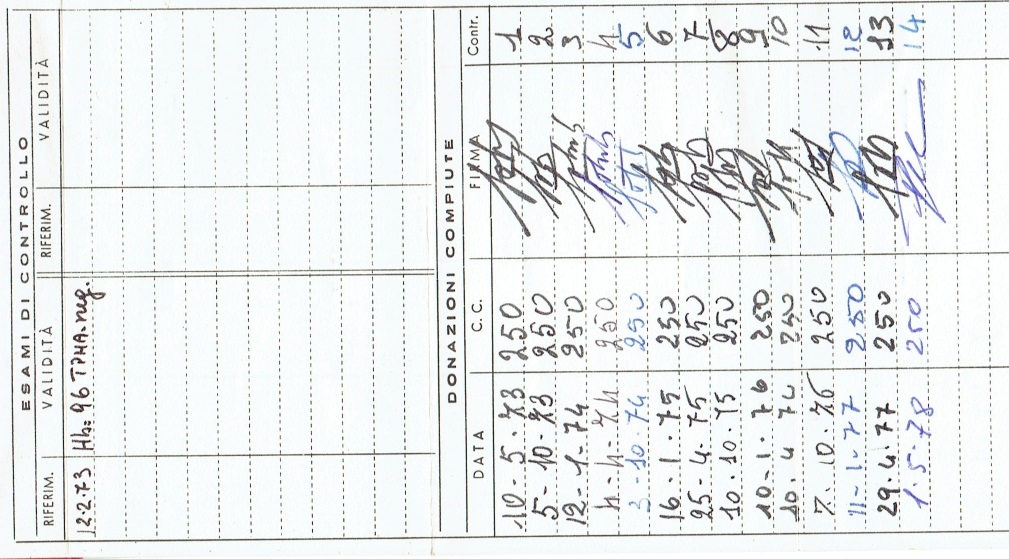 ESAMI DI CONTROLLO
RIFERIM. VALIDITÀ RIFERIM. VALIDITÀ
12.2.73 Hb=96 TPHA neg.
DONAZIONI COMPIUTE
DATA C.C. FIRMA Contr.
10-5-73 250 1
5-10-73 250 2
12-1-74 250 3
4-4-74 250 4
3-10-74 250 5
16-1-75 250 6
25-4-75 250 7
10-10-75 250 8
10-1-76 250 9
10.4.76 250 10
7.10.76 250 11
11-1-77 250 12
29.4.77 250 13
1.5.78 250 14